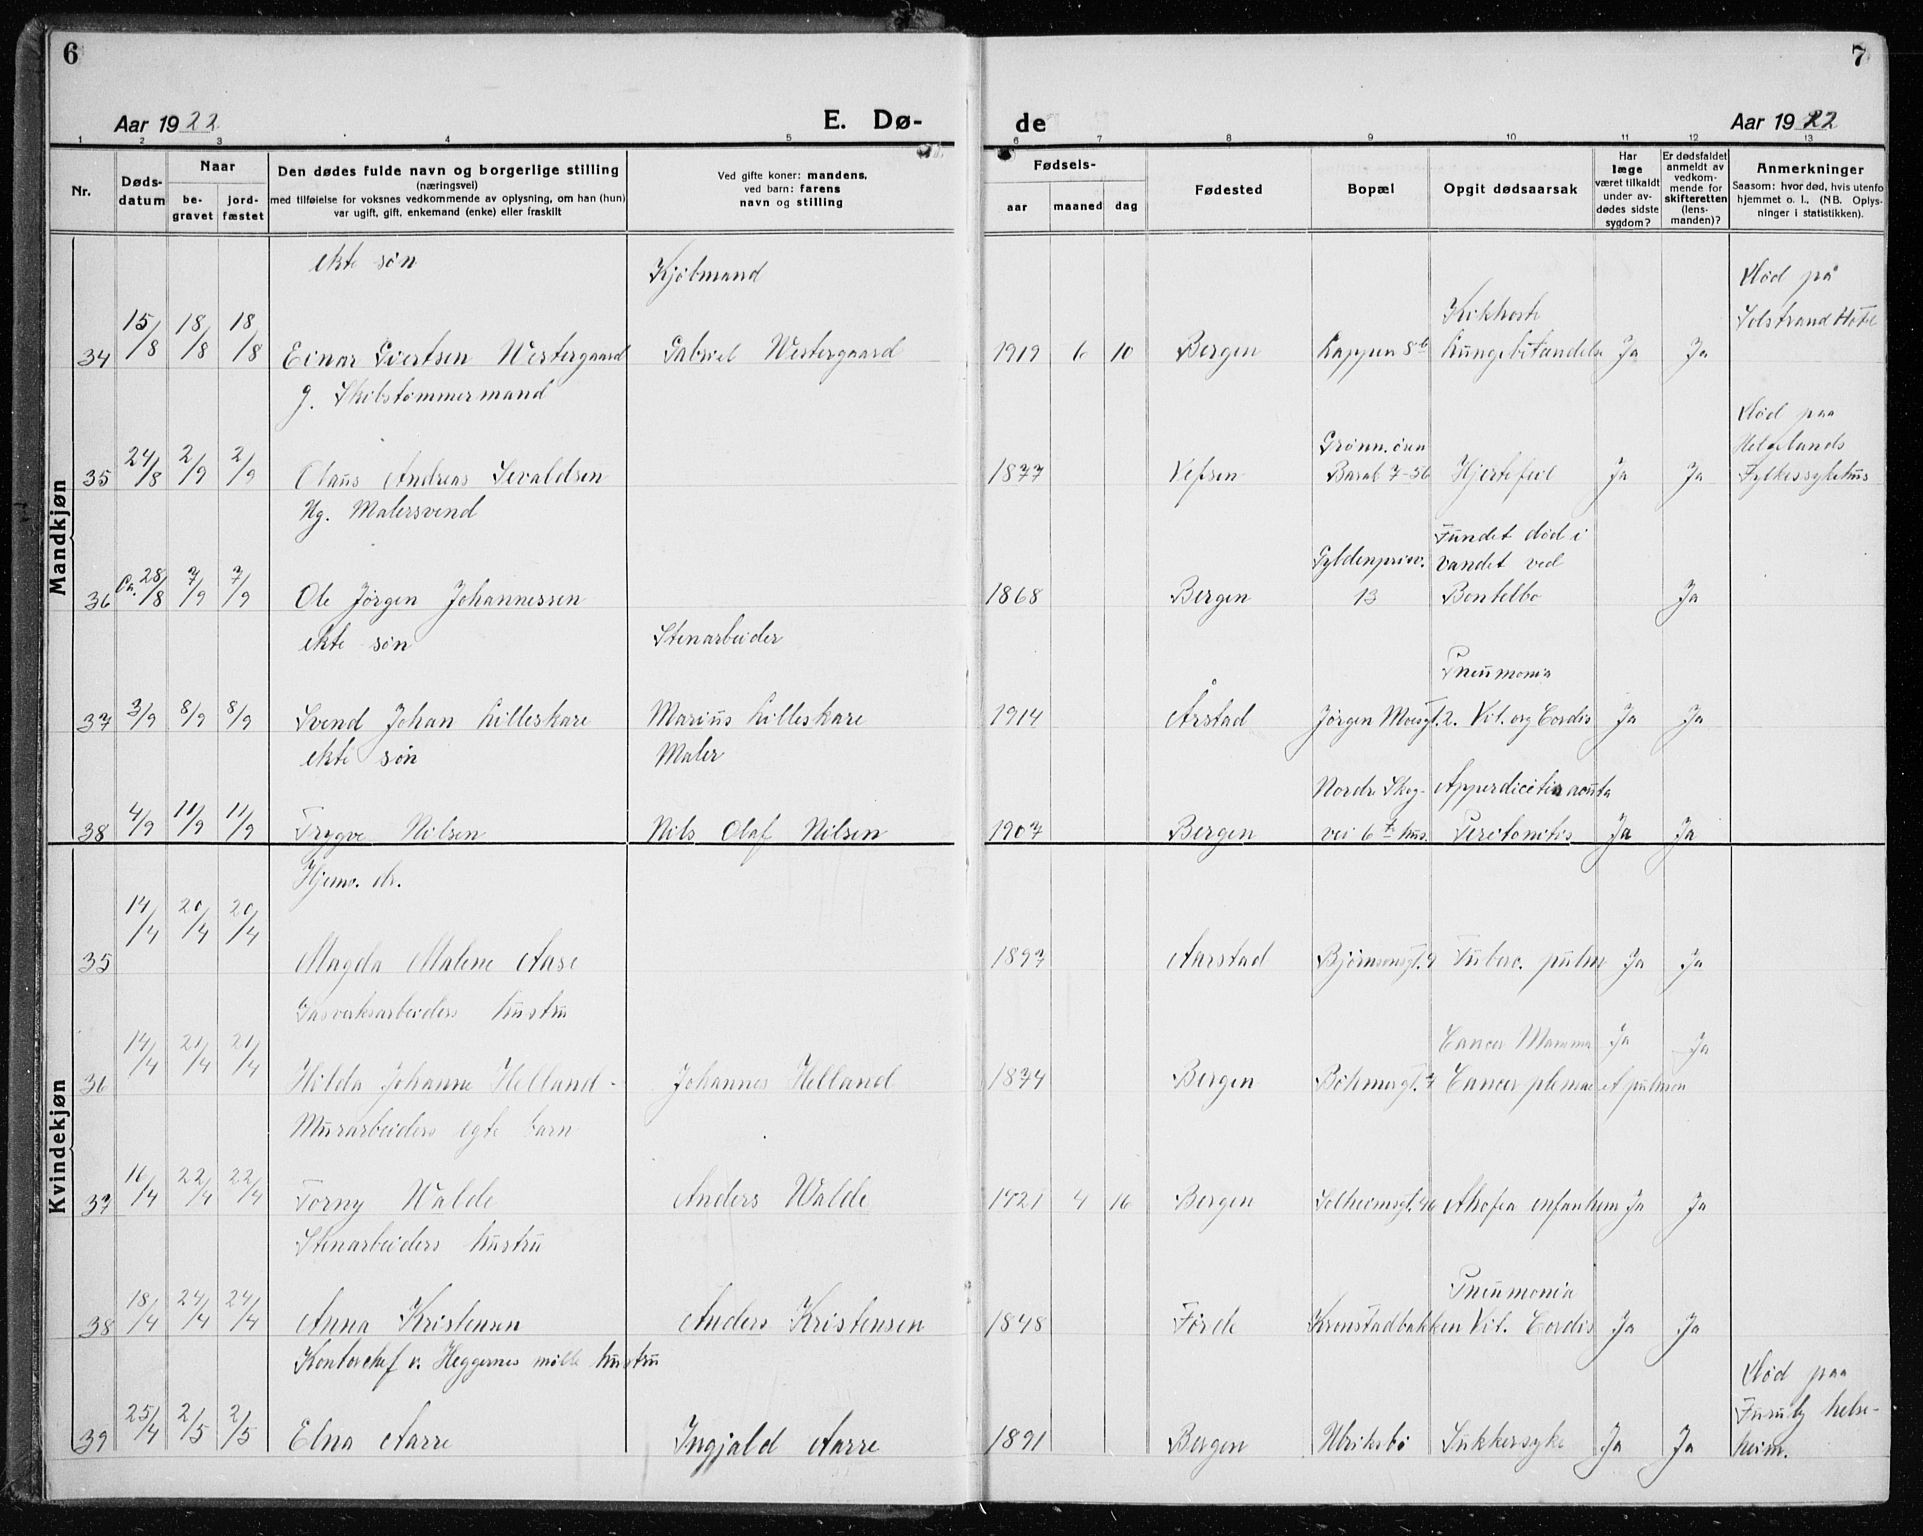 6
Aar 1922
E. Dø-
1 2 3 4 5
Nr.
Døds-
datum
Naar
be-
gravet
jord-
fæstet
Den dødes fulde navn og borgerlige stilling
(næringsvei)
med tilføielse for voksnes vedkommende av oplysning, om han (hun)
var ugift, gift, enkemand (enke) eller fraskilt
Ved gifte koner: mandens,
ved barn: farens
navn og stilling
Mandkjøn
ekte søn Kjøbmand
34 15/8 18/8 18/8 Einar Sjertsen Westergaard Gabriel Westergaard
g. Skibstømmermand
35 24/8 2/9 2/9 Claus Andreas Sevaldsen
Ug. Malersvend
36 Ca. 28/8 7/9 7/9 Ole Jørgen Johannessen
ekte søn Stenarbeider
37 3/9 8/9 8/9 Svend Johan Lilleskare Marius Lilleskare
ekte søn Maler
38 4/9 11/9 11/9 Trygve Nilsen Nils Olaf Nilsen
Kvindekjøn
Hjemv. dr.
35 14/4 20/4 20/4 Magda Malene Aase
Gasverksarbeiders hustru
36 14/4 21/4 21/4 Hilda Johanne Helland - Johannes Helland
Murarbeiders egte barn
37 16/4 22/4 22/4 Torny Walde Anders Walde
Stenarbeiders hustru
38 18/4 24/4 24/4 Anna Kristensen Anders Kristensen
Kontorchef v. Heggernes mølle hustru
39 25/4 2/5 2/5 Elna Aarre Ingjald Aarre
7
de
Aar 1922
6 7 8 9 10 11 12 13
Fødsels-
aar maaned dag
Fødested
Bopæl
Opgit dødsaarsak
Har
læge
været tilkaldt
under av-
dødes sidste
sygdom?
Er dødsfaldet
anmeldt av
vedkom-
mende for
skifteretten
(lens-
manden)?
Anmerkninger
Saasom: hvor død, hvis utenfo
hjemmet o. l., (NB. Oplys-
ninger i statistikken).
Død på
Kikhoste Solstrand Hotel
1919 6 10 Bergen Kappen 8b Lungebetændelse Ja Ja
Død paa
Grønn.øren Helgelands
1877 Vefsen Barak 7-56 Hjertefeil Ja Ja Fylkessykehus
Fundet død i
Gyldenprisv. vandet ved
1868 Bergen 13 Bontelbo Ja
Pneumonia
1914 Årstad Jørgen Moesgt. 2. Vit. org Cordis Ja Ja
Nordre Skog- Apperdicitis acuta
1907 Bergen vei 6te hus. Peritonitis Ja Ja
1897 Aarstad Bjørnsonsgt. 9 Tuberc. pulm Ja Ja
Cancer Mamma Ja Ja
1874 Bergen Bøhmersgt. 7 Cancer plemae et pulmon
1921 4 16 Bergen Solheimsgt. 46 Atrofia infantum Ja Ja
Pneumonia
1848 Førde Kronstadbakken Vit. Cordis Ja Ja
Død paa
Furuly helse-
1891 Bergen Ulriksbø Sukkersyke Ja Ja heim.